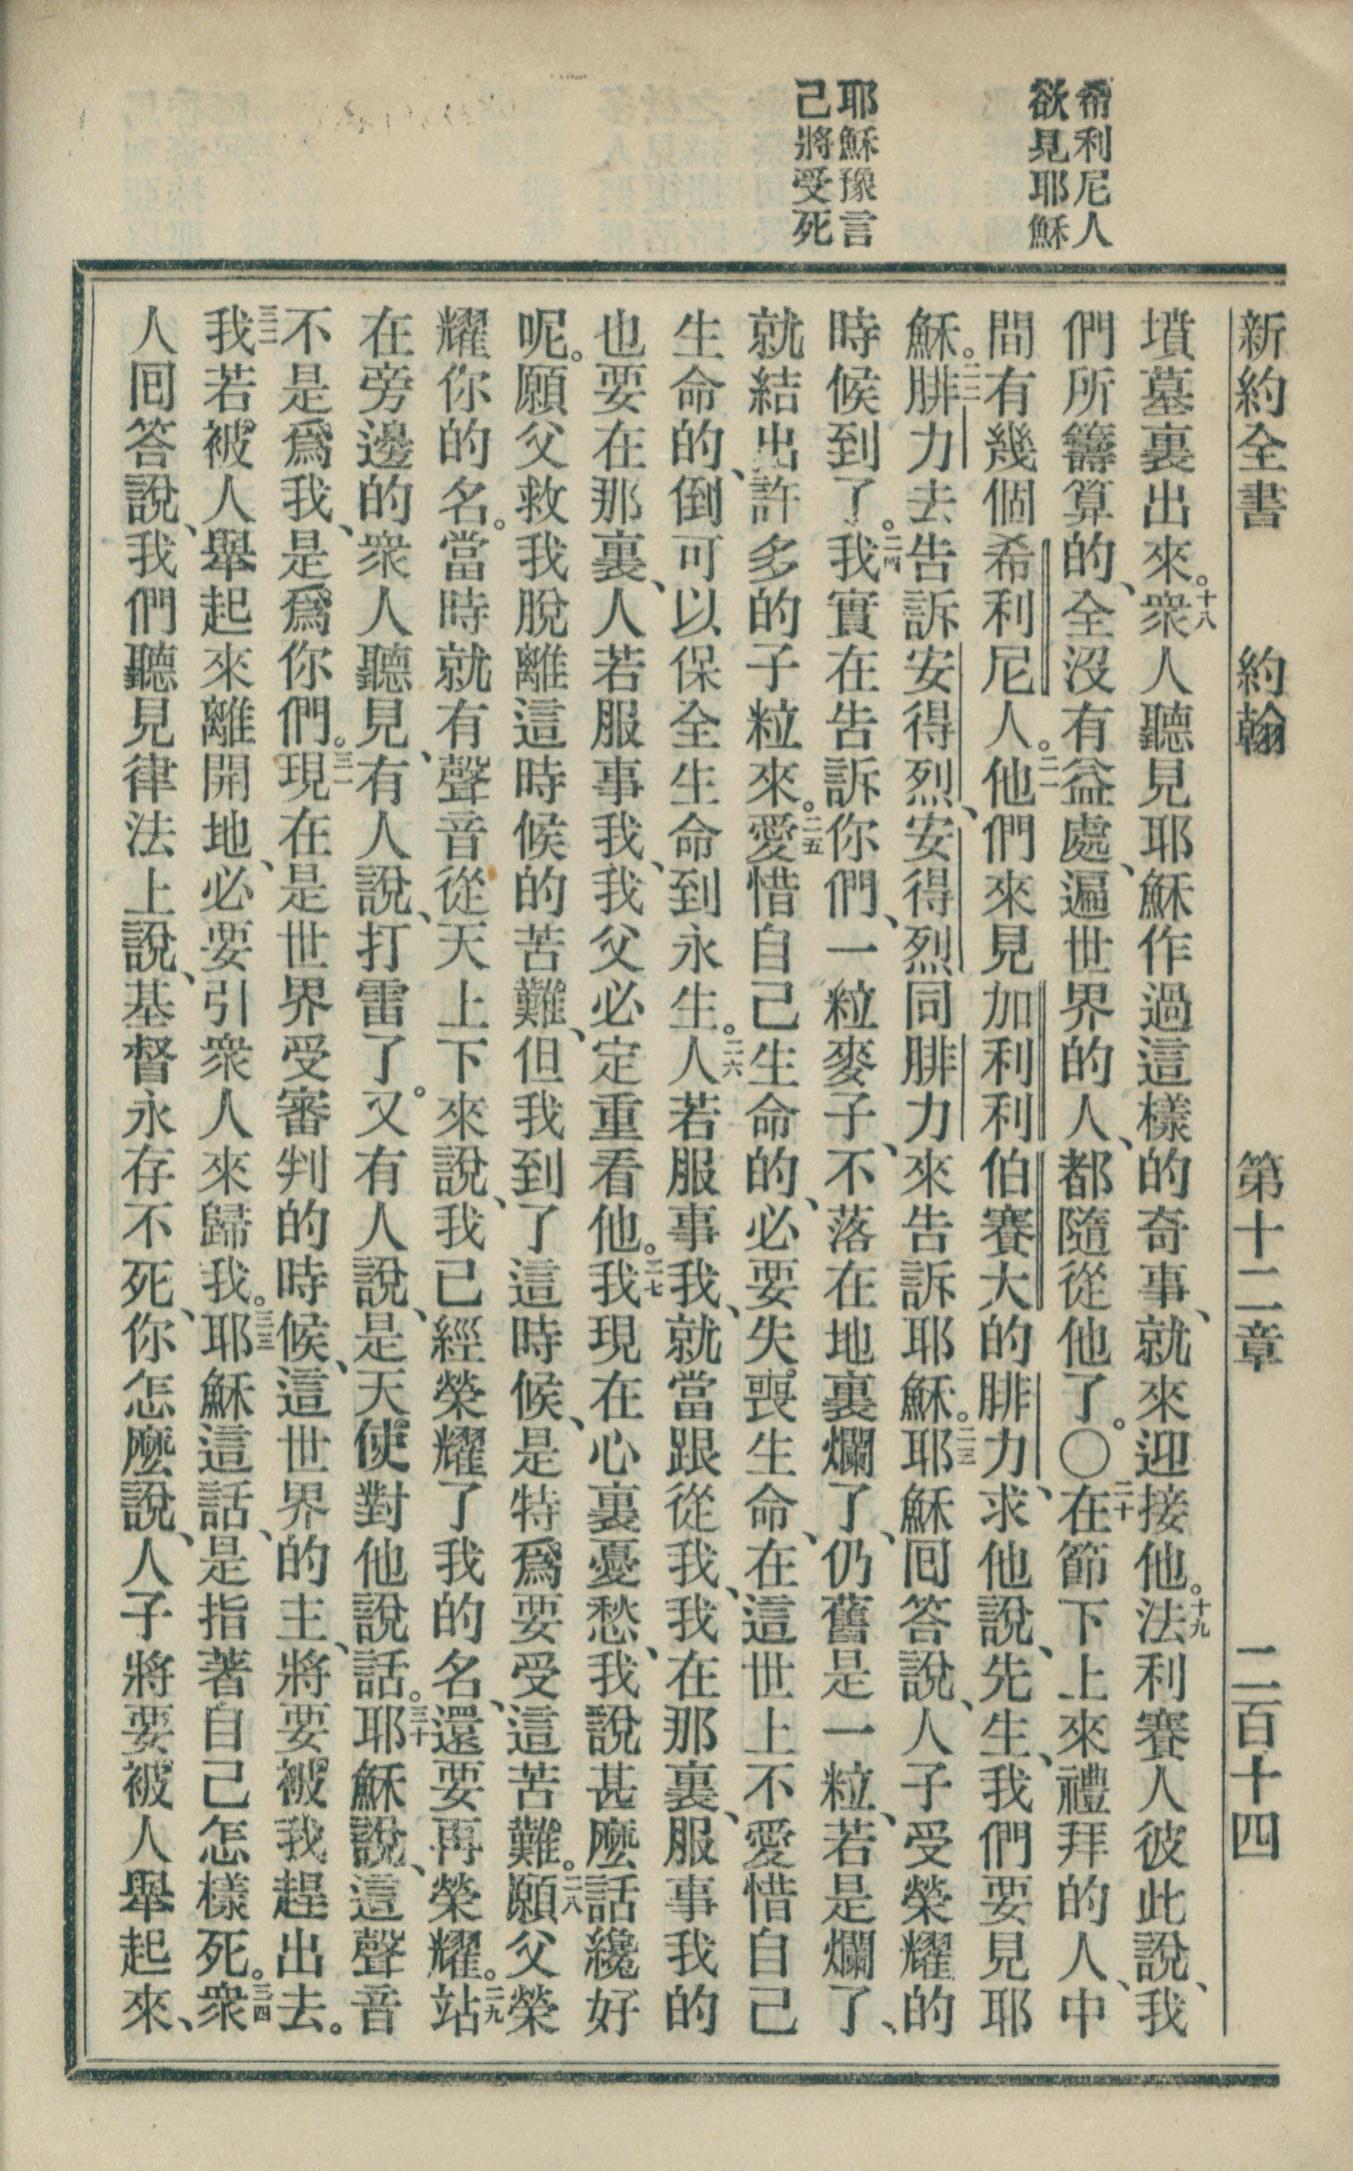 希利尼人
欲見耶穌
耶穌豫言
己將受死
新約全書 約翰 第十二章 二百十四
墳墓裏出來。十八衆人聽見耶穌作過這樣的奇事、就來迎接他。十九法利賽人彼此說、我
們所籌算的、全沒有益處、遍世界的人、都隨從他了。〇二十在節下上來禮拜的人、中
間有幾個希利尼人。二一他們來見加利利伯賽大的腓力、求他說、先生、我們要見耶
穌。二二腓力去告訴安得烈、安得烈同腓力來告訴耶穌。二三耶穌囘答說、人子受榮耀的
時候到了。二四我實在告訴你們、一粒麥子、不落在地裏爛了、仍舊是一粒、若是爛了、
就結出許多的子粒來。二五愛惜自己生命的、必要失喪生命、在這世上不愛惜自己
生命的、倒可以保全生命到永生。二六人若服事我、就當跟從我、我在那裏、服事我的
也要在那裏、人若服事我、我父必定重看他。二七我現在心裏憂愁、我說甚麼話纔好
呢。願父救我脫離這時候的苦難、但我到了這時候、是特爲要受這苦難。二八願父榮
耀你的名。當時就有聲音從天上下來說、我已經榮耀了我的名、還要再榮耀。二九站
在旁邊的衆人聽見、有人說、打雷了。又有人說、是天使對他說話。三十耶穌說、這聲音
不是爲我、是爲你們。三一現在是世界受審判的時候、這世界的主、將要被我趕出去。
三二我若被人舉起來離開地、必要引衆人來歸我。三三耶穌這話、是指著自己怎樣死。三四衆
人囘答說、我們聽見律法上說、基督永存不死、你怎麼說、人子將要被人舉起來、